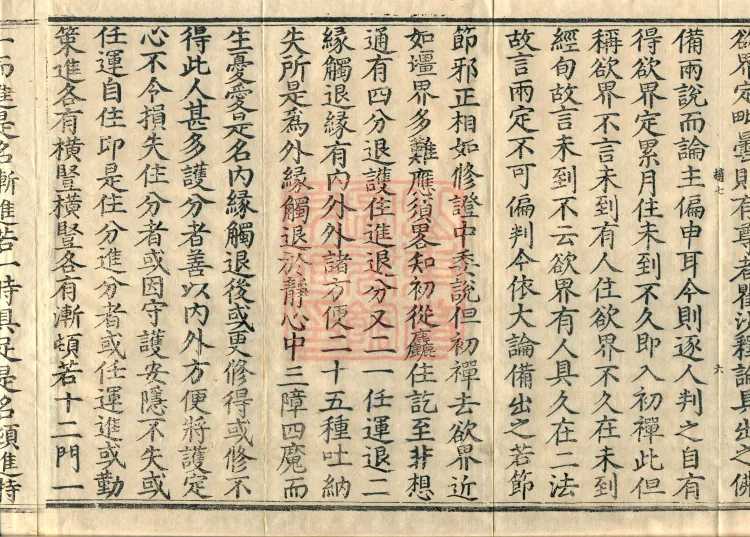 欲界定明曇則有尊者瞿沙釋論具出之佛
備兩說而論主偏申耳今則逐人判之自有
得欲界定累月住未到不久即入初禪此但
稱欲界不言未到有人住欲界不久在未到
經旬故言未到不云欲界有人具久在二法
故言兩定不可偏判今依大論備出之若節
節邪正相如修證中委說但初禪去欲界近
如壃界多難應須畧知初從麤住訖至非想
通有四分退護住進退分又二一任運退二
緣觸退緣有內外外諸方便二十五種吐納
失所是爲外緣觸退於靜心中三障四魔而
生憂愛是名內緣觸退後或更修得或修不
得此人甚多護分者善以內外方便將護定
心不令損失住分者或因守護安隱不失或
任運自住卽是住分進分者或任運進或勤
策進各有橫豎橫豎各有漸頓若十二門一
一而進是名漸進若一時具足是名頓進持
七
六